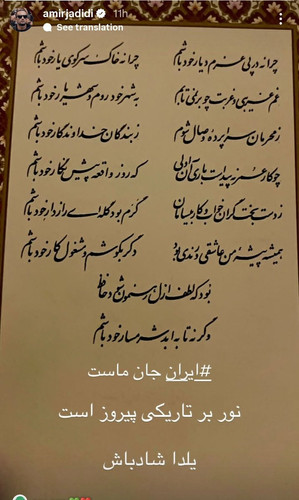 amirjadidi 11h
See translation
چرا نه در پی عزم دیار خود باشم چرا نه خاک سر کوی یار خود باشم
غم غریبی و غربت چو بر نمی تابم به شهر خود روم و شهریار خود باشم
ز محرمان سراپرده وصال شوم ز بندگان خداوندگار خود باشم
چو کار عمر نه پیداست باری آن اولی که روز واقعه پیش نگار خود باشم
ز دست بخت گران خواب و کار بی سامان گرم بود گله ای رازدار خود باشم
همیشه پیشه من عاشقی و رندی بود دگر بکوشم و مشغول کار خود باشم
بود که لطف ازل رهنمون شود حافظ
وگرنه تا به ابد شرمسار خود باشم
#ایران جان ماست
نور بر تاریکی پیروز است
یلدا شادباش